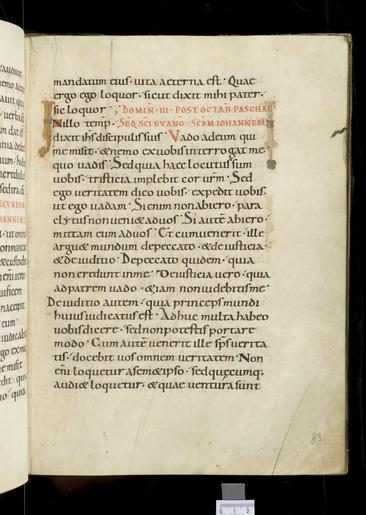 mandatum eius · vita aeterna est · Quae
ergo ego loquor · sicut dixit mihi pater ·
sic loquor · DOMIN · III · POST OCTAB PASCHAE
In illo temp · SEQ SCI EVANG · SCDM IOHANNEM
dixit ihs discipulis suis · Vado ad eum qui
me misit · & nemo ex vobis interrogat me
quo vadis · Sed quia haec locutus sum
vobis · tristicia implebit cor vrm · Sed
ego veritatem dico vobis · expedit vobis ·
ut ego vadam · Si enim non abiero · para
clytus non veni& ad vos · Si aute abiero ·
mittam eum ad vos · Et cum venerit · ille
argu& mundum de peccato · & de iusticia ·
& de iuditio · De peccato quidem · quia
non credunt in me · De iusticia vero · quia
ad patrem vado · & iam non videbitis me
De iuditio autem · quia princeps mundi
huius iudicatus est · Adhuc multa habeo
vobis dicere · sed non potestis portare
modo · Cum aute venerit ille sps verita
tis · docebit vos omnem veritatem · Non
eni loquetur a sem&ipso · sed quecumq;
audi& loquetur · & quae ventura sunt
83